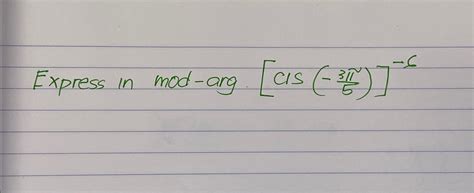 Express in mod-arg. [cis (-3π/5)]^-6